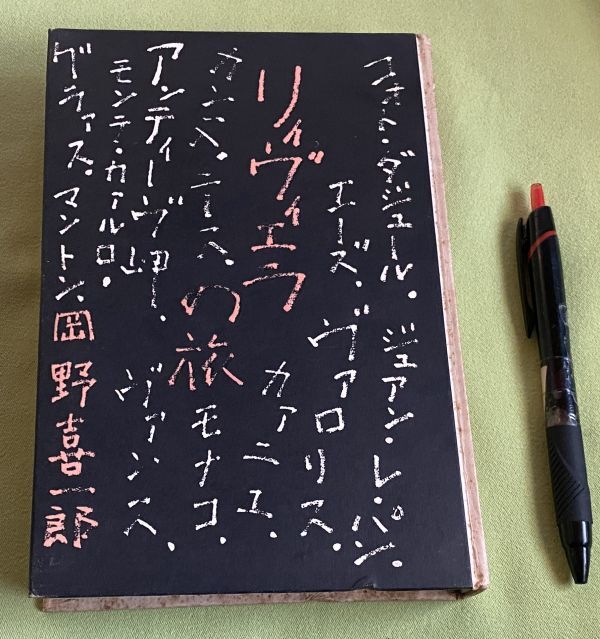 コオト・ダジュール・
ジュアン・レ・パン・
エーズ・
ヴァロリス・
リィヴィエラ
の旅
カァニュ・
カンヌ・ニース・
モナコ・
アンティーヴ岬・
ヴァンス・
モンテ・カァルロ・
グラァス・マントン・
岡野喜一郎